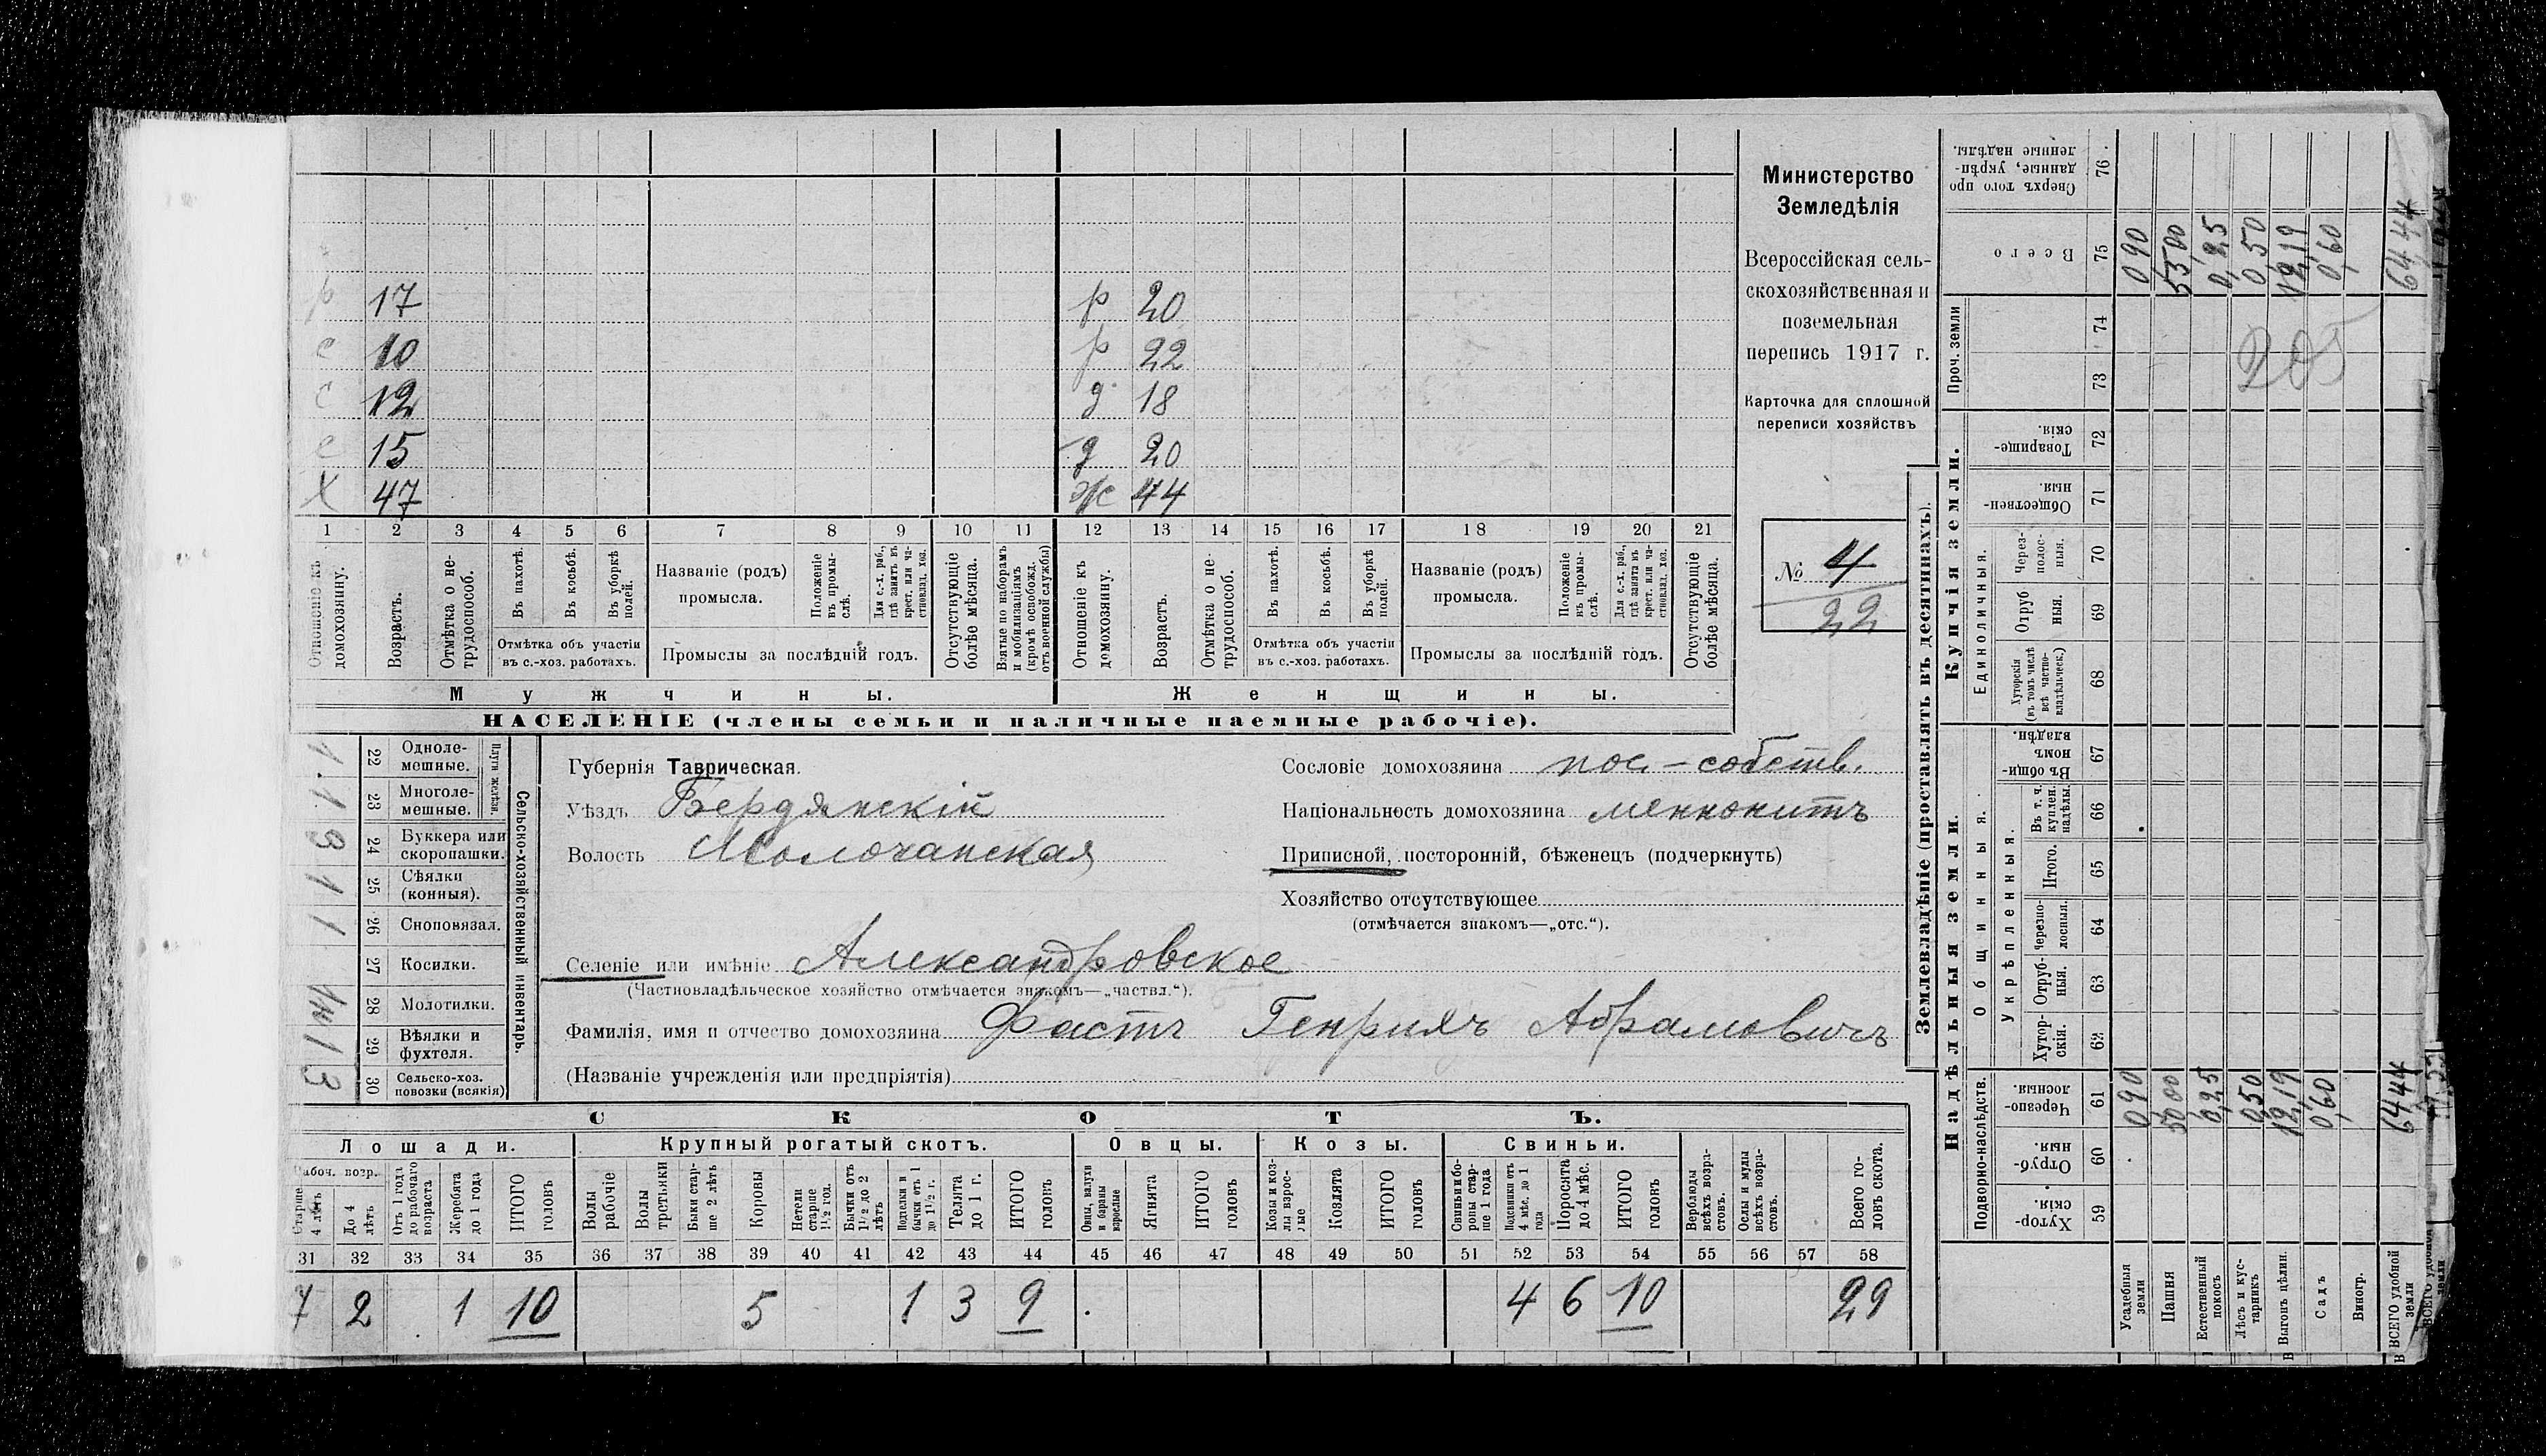 р 17 р 20
с 10 р 22
с 12 д 18
с 15 д 20
Х 47 Ж 44
1 2 3 4 5 6 7 8 9 10 11 12 13 14 15 16 17 18 19 20 21
Отношеніе къ домохозяину.
Возрастъ.
Отмѣтка о нетрудоспособ.
Въ пахотѣ.
Въ косьбѣ.
Въ уборкѣ полей.
Отмѣтка объ участіи
въ с.-хоз. работахъ.
Названіе (родъ)
промысла.
Положеніе въ промыслѣ.
Для с.-х. раб., гдѣ занятъ въ крест. или частновлад. хоз.
Промыслы за послѣдній годъ.
Отсутствующіе болѣе мѣсяца.
Взятые по наборамъ и мобилизаціямъ (кромѣ освобожд. отъ военной службы)
Отношеніе къ домохозяину.
Возрастъ.
Отмѣтка о нетрудоспособ.
Въ пахотѣ.
Въ косьбѣ.
Въ уборкѣ полей.
Отмѣтка объ участіи
въ с.-хоз. работахъ.
Названіе (родъ)
промысла.
Положеніе въ промыслѣ.
Для с.-х. раб., гдѣ занята въ крест. или частновлад. хоз.
Промыслы за послѣдній годъ.
Отсутствующіе болѣе мѣсяца.
Мужчины. Женщины.
НАСЕЛЕНІЕ (члены семьи и наличные наемные рабочіе).
Министерство
Земледѣлія
Всероссійская сель-
скохозяйственная и
поземельная
перепись 1917 г.
Карточка для сплошной
переписи хозяйствъ
№ 4
22
Сельско-хозяйственный инвентарь.
Плуги желѣзн.
22 Одноле-
мешные. 1
23 Многоле-
мешные. 1
24 Буккера или
скоропашки. 3
25 Сѣялки
(конныя). 1
26 Сноповязал. 1
27 Косилки.
28 Молотилки.
29 Вѣялки и
фухтеля. 1
30 Сельско-хоз.
повозки (всякія) 3
Губернія Таврическая.
Уѣздъ Бердянскій
Волость Молочанская
Сословіе домохозяина пос.-собств.
Національность домохозяина меннонитъ
Приписной, посторонній, бѣженецъ (подчеркнуть)
Хозяйство отсутствующее
(отмѣчается знакомъ—„отс.“).
Селеніе или имѣніе Александровское
(Частновладѣльческое хозяйство отмѣчается знакомъ—„частвл.“).
Фамилія, имя и отчество домохозяина Фастъ Генрихъ Абрамовичъ
(Названіе учрежденія или предпріятія)
СКОТЪ.
Лошади. Крупный рогатый скотъ. Овцы. Козы. Свиньи.
Рабоч. возр.
Старше 4 лѣтъ
До 4 лѣтъ
Отъ 1 года до рабочаго возраста
Жеребята до 1 года
ИТОГО головъ
Волы рабочіе
Волы третьяки
Быки старше 2 лѣтъ
Коровы
Нетели старше 1½ год.
Бычки отъ 1½ до 2 лѣтъ
Подтелки и бычки отъ 1 до 1½ г.
Телята до 1 г.
ИТОГО головъ
Овцы, валухи и бараны взрослые
Ягнята
ИТОГО головъ
Козы и козлы взрослые
Козлята
ИТОГО головъ
Свиньи и боровы старше 1 года
Подсвинки отъ 4 мѣс. до 1 года
Поросята до 4 мѣс.
ИТОГО головъ
Верблюды всѣхъ возрастовъ.
Ослы и мулы всѣхъ возрастовъ.
Всего головъ скота.
31 32 33 34 35 36 37 38 39 40 41 42 43 44 45 46 47 48 49 50 51 52 53 54 55 56 57 58
7 2 1 10 5 1 3 9 4 6 10 29
Землевладѣніе (проставлять въ десятинахъ).
Надѣльныя земли. Купчія земли. Проч. земли
Подворно-наслѣдств.
Общинныя.
Укрѣпленныя.
Единоличныя.
59 Хуторскія.
60 Отрубныя.
61 Черезполосныя.
62 Хуторскія.
63 Отрубныя.
64 Черезполосныя.
65 Итого.
66 Въ т. ч. куплен. надѣлы.
67 Въ общинномъ владѣн.
68 Хуторскія (въ томъ числѣ всѣ частновладѣльческ.)
69 Отрубныя.
70 Черезполосныя.
71 Общественныя.
72 Товарищескія.
73
74
75 Всего
76 Сверхъ того проданные, укрѣпленные надѣлы.
Усадебныя земли 0,90 0,90
Пашня 50,00
Естественный покосъ 0,25 0,25
Лѣсъ и кустарникъ 0,50 0,50
Выгонъ цѣлин. 12,19 12,19
Садъ 0,60 0,60
Виногр.
ВСЕГО удобной земли 64,44 64,44
205